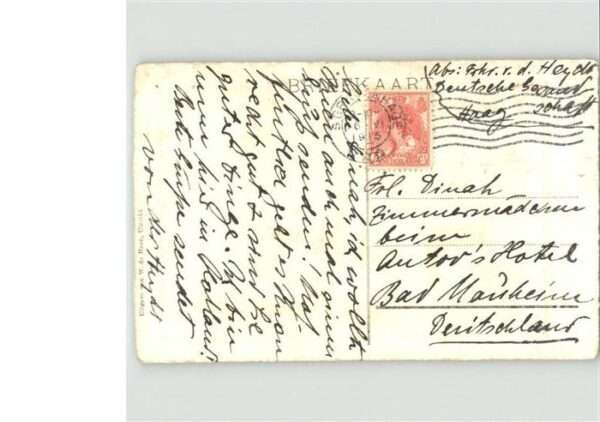 BRIEFKAART
Abs: Frhr. v. d. Heydt
Deutsche Gesandt
schaft
Haag
Frl. Dinah
Zimmermädchen
beim
Autor's Hotel
Bad Nauheim
Deutschland
Liebe Dinah, ich wollte
Ihnen auch mal einen
Gruß senden! Hof-
fentlich geht es Ihnen
recht gut & sind Sie
guter Dinge. Ich bin
nun hier in Holland.
Beste Grüße sendet
von der Heydt